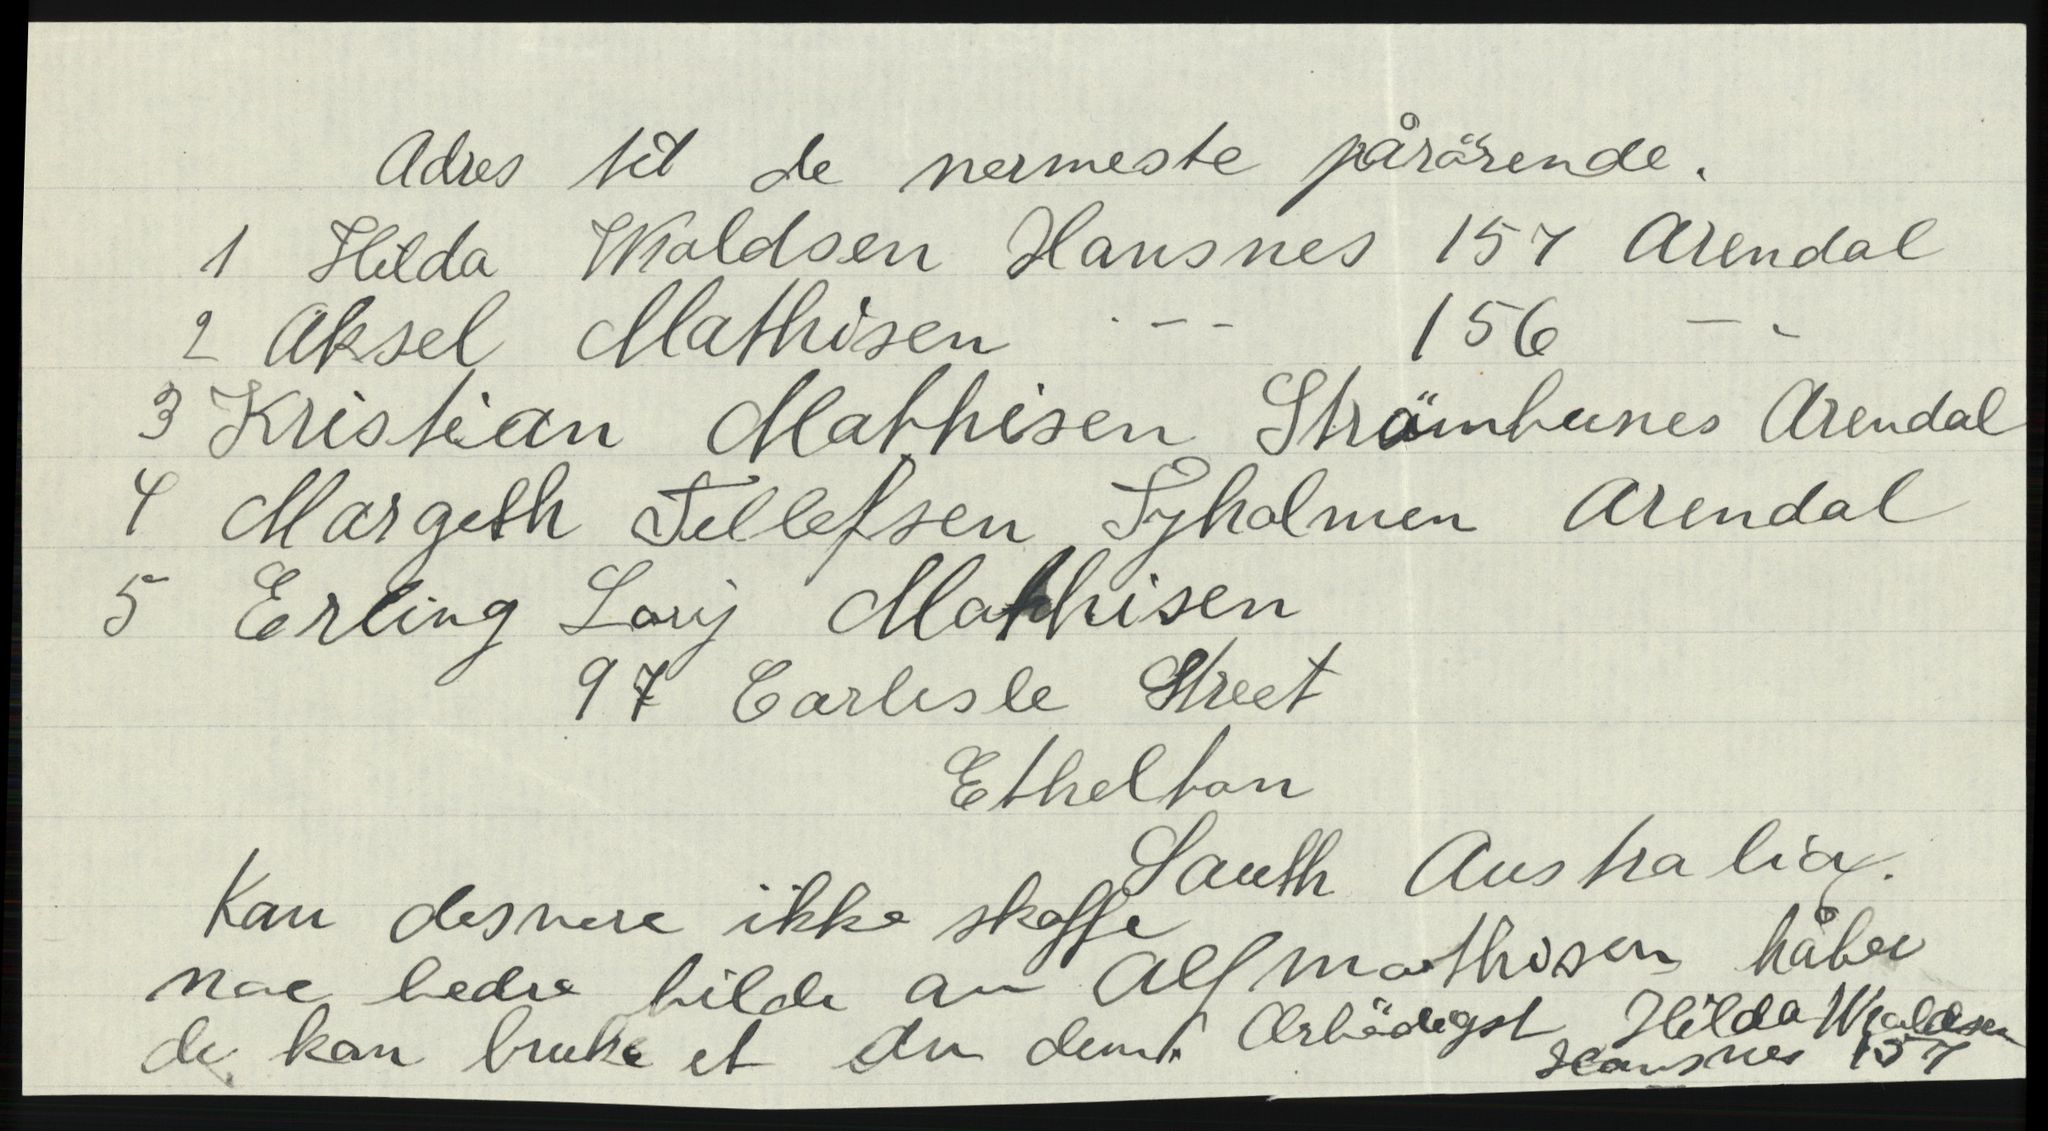 Adres til de nermeste pårörende.
1 Hilda Waldsen Hausnes 157 Arendal
2 Aksel Mathisen - - - 156 - -
3 Kristian Mathisen Strömbunes Arendal
4 Margeth Tellefsen Tyholmen Arendal
5 Erling Lorij Mathisen
97 Carlisle Street
Ethelton
South Australia.
Kan desvere ikke skaffe
noe bedre bilde av Alf Mathisen håber
de kan bruke et av dem. Ærbödigst Hilda Waldsen
Hausnes 157